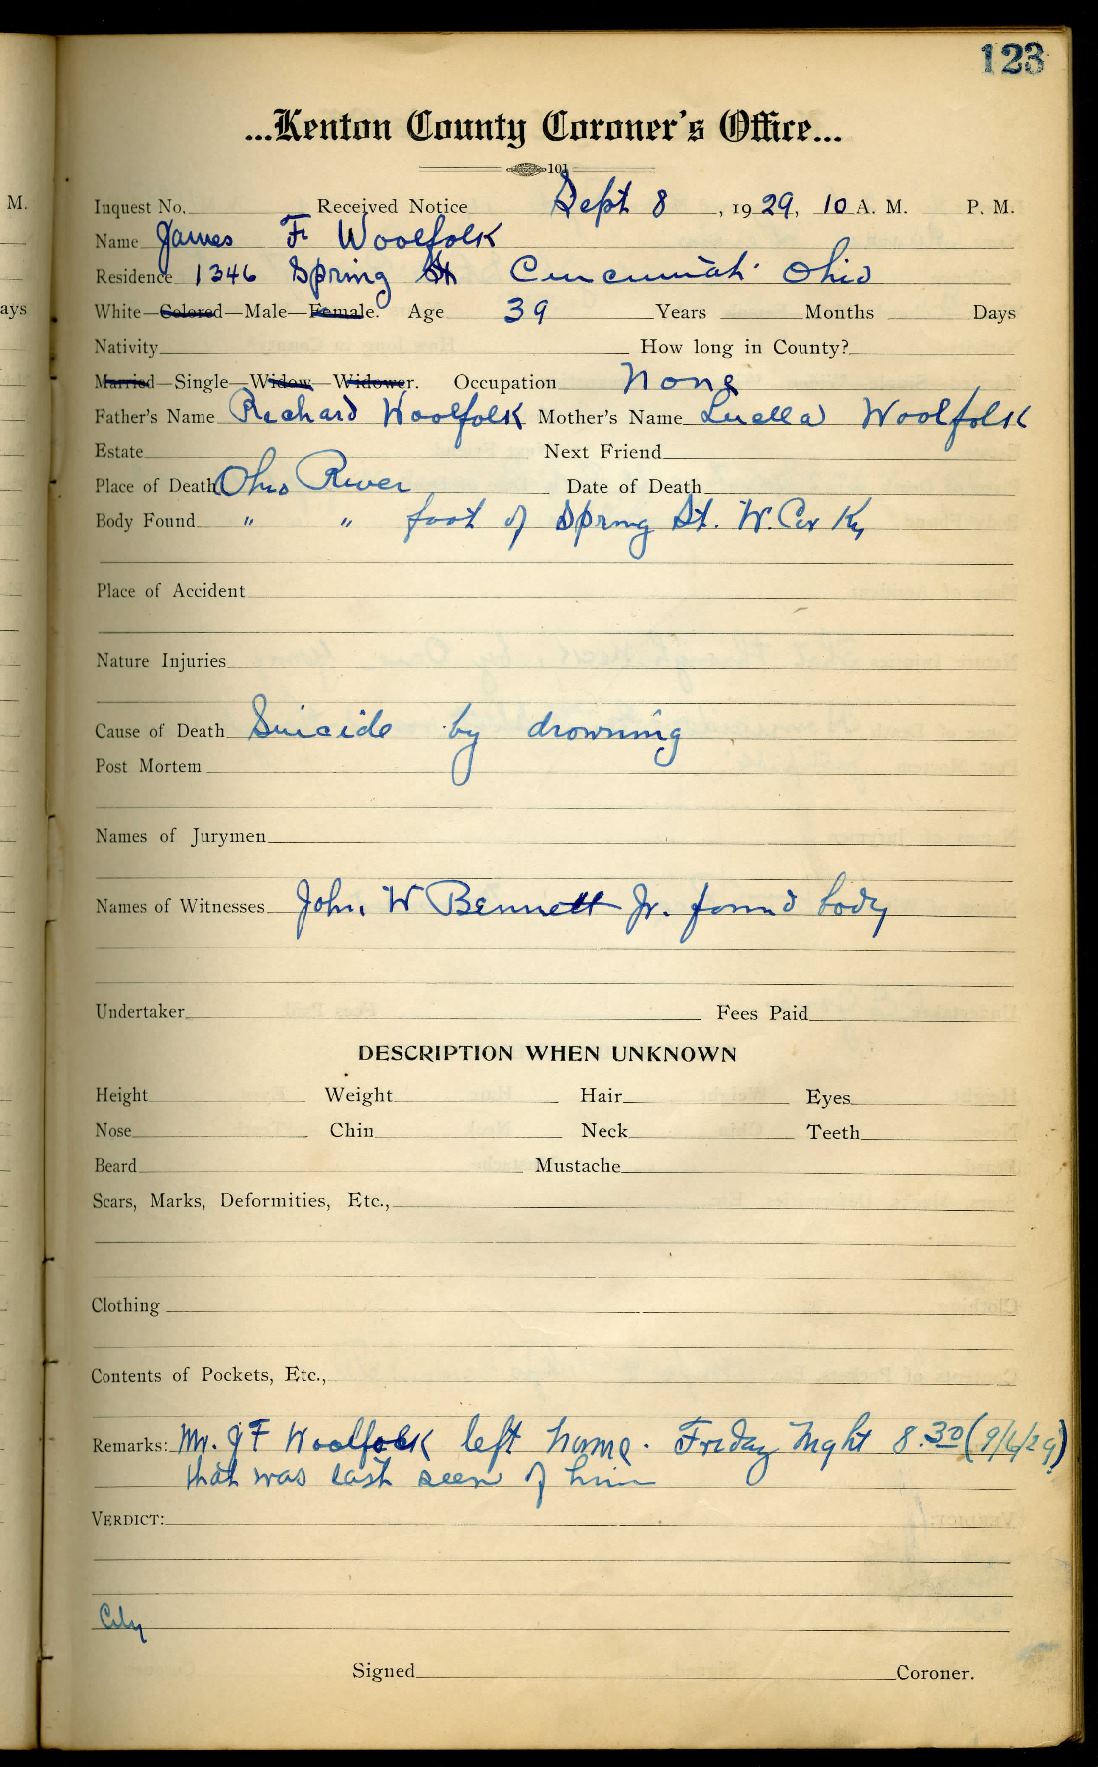 123
...Kenton County Coroner's Office...
101
M.
Inquest No. Received Notice Sept 8, 1929, 10 A. M. P. M.
Name James F Woolfolk
Residence 1346 Spring St Cincinnati Ohio
ays
White—Colored—Male—Female. Age 39 Years Months Days
Nativity How long in County?
Married—Single—Widow—Widower. Occupation None
Father's Name Richard Woolfolk Mother's Name Luella Woolfolk
Estate Next Friend
Place of Death Ohio River Date of Death
Body Found " " foot of Spring St. W. Cov Ky
Place of Accident
Nature Injuries
Cause of Death Suicide by drowning
Post Mortem
Names of Jurymen
Names of Witnesses John W Bennett Jr. found body
Undertaker Fees Paid
DESCRIPTION WHEN UNKNOWN
Height Weight Hair Eyes
Nose Chin Neck Teeth
Beard Mustache
Scars, Marks, Deformities, Etc.,
Clothing
Contents of Pockets, Etc.,
Remarks: Mr. J F Woolfolk left home. Friday Night 8.30 (9/6/29)
that was last seen of him
VERDICT:
City
Signed Coroner.